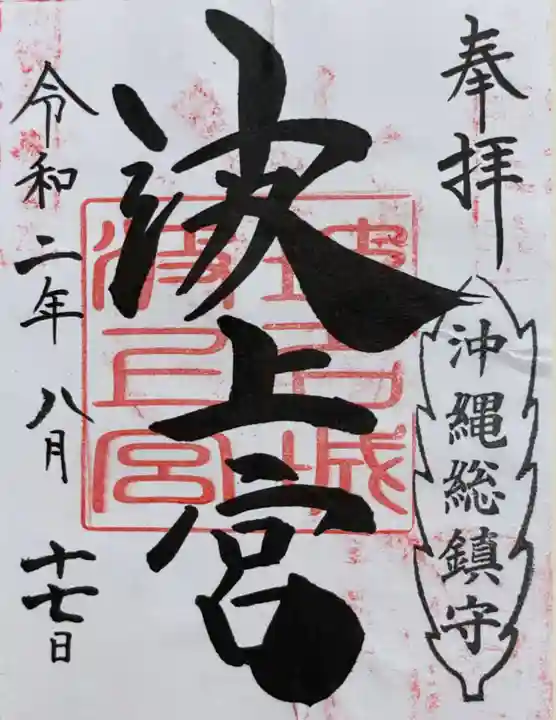 奉拝
沖縄総鎮守
波上宮
令和二年八月十七日